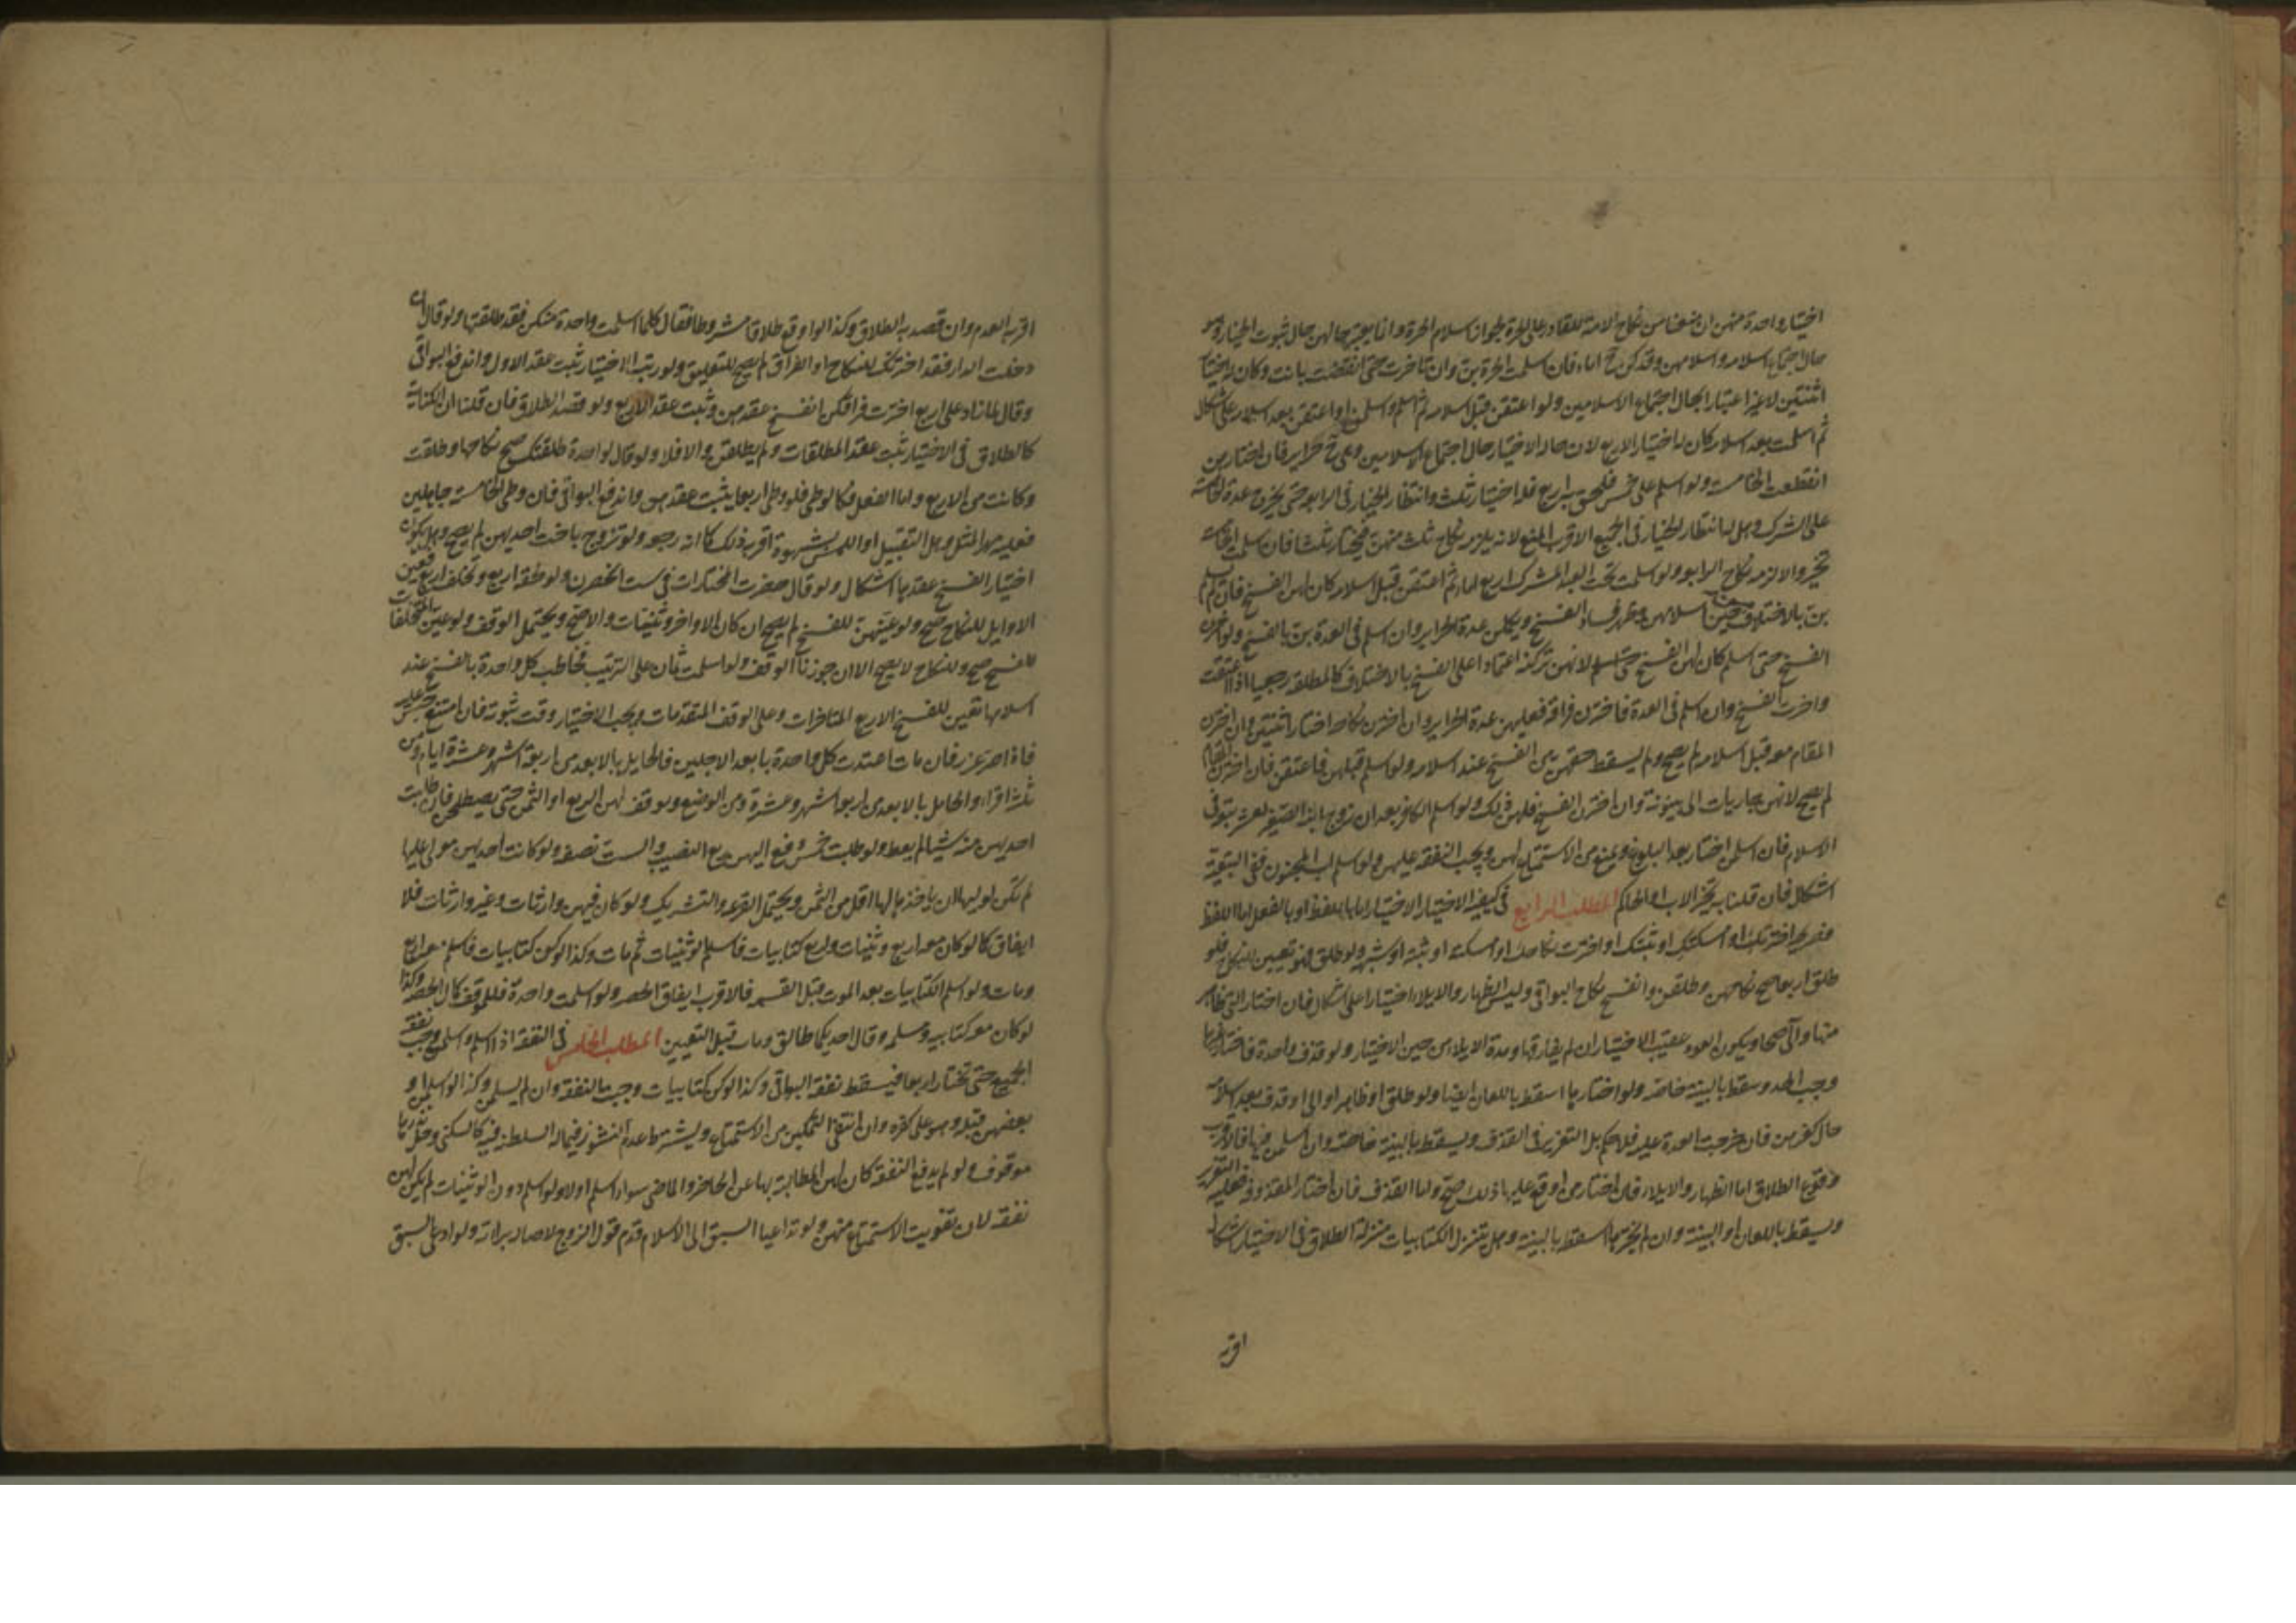 اختيار واحدة منهن ان منعنا من نكاح الامة للقادر على الحرة لجواز اسلام الحرة وانا يعتبر حالهن حال ثبوت الخيار وهو
حال اجتماع اسلامه واسلامهن وقد كن ح اماء فان اسلمت الحرة بن وان تاخرت حتى انقضت بانت وكان له اختيار
اثنتين لا غير اعتبارا بحال اجتماع الاسلامين ولو اعتقن قبل اسلامه ثم اسلم واسلمن او اعتقن بعد اسلامه على اشكال
ثم اسلمت بعد اسلامه كان له اختيار الاربع لان حال الاختيار حال اجتماع الاسلامين وهي ح حراير فان اختارهن
انقطعت الخامسة ولو اسلم على خمس فلحق به اربع فله اختيار ثلث وانتظار الخيار في الرابع حتى يخرج عدة الخامسة
على الشرك وهل له انتظار الخيار في الجميع الاقرب المنع لانه يلزمه نكاح ثلث منهن فيختار ثلثا فان اسلمت الخامسة
تخير والا لزمه نكاح الرابع ولو اسلمت تحت العبد المشرك اربع اماء ثم اعتقن قبل اسلامه كان لهن الفسخ فان لم يسلم
بن بالاختلاف حين اسلامهن وظهر فساد الفسخ ويكملن عدة الحراير وان اسلم في العدة بن بالفسخ ولو اخرن
الفسخ حتى اسلم كان لهن الفسخ لانهن تركنه اعتمادا على الفسخ بالاختلاف كالمطلقة رجعيا اذا اعتقت
واخرت الفسخ وان اسلم في العدة فاخترن فراقه فعليهن عدة الحراير وان اخترن نكاحه اختار اثنتين وان اخترن
المقام معه قبل اسلامه لم يصح ولم يسقط حقهن من الفسخ عند اسلامه ولو اسلم قبلهن فاعتقن فان اخترن المقام
لم يصح لانهن جاريات الى بينونة وان اخترن الفسخ فلهن ذلك ولو اسلم الكافر بعد ان زوج ابنه الصغير بعشر بتوقي
الاسلام فان اسلمن اختار بعد البلوغ ويمنع من الاستمتاع بهن ويجب النفقة عليهن ولو اسلم اب المجنون ففي التبعية
اشكال فان قلنا به تخير الاب او الحاكم المطلب الرابع في كيفية الاختيار الاختيار اما باللفظ او بالفعل اما اللفظ
فصريح اخترتك او امسكتك او ثبتك او اخترت نكاحك او امسكته او ثبته او شبهه ولو طلق فهو تعيين للنكاح فلو
طلق اربعا صح نكاحهن وطلقن وانفسخ نكاح البواقي وليس الظهار والايلاء اختيارا على اشكال فان اختار التي ظاهر
منها والى صحا ويكون العود عقيب الاختيار ان لم يفارقها ومدة الايلاء من حين الاختيار ولو قذف واحدة فاختار غيرها
وجب الحد وسقط بالبينة خاصة ولو اختارها اسقط باللعان ايضا ولو طلق او ظاهر او الى او قذف بعد اسلامه
حال كفرهن فان خرجت العدة عليه فلا حكم بل التعزير في القذف ويسقط بالبينة خاصة وان اسلمن فيها فالاقرب
وقوع الطلاق اما الظهار والايلاء فان اختار من اوقع عليها ذلك صح واما القذف فان اختار المقذوفة فعليه التعزير
ويسقط باللعان او البينة وان لم يخترها اسقط بالبينة وهل تنزل الكتابيات منزلة الطلاق في الاختيار اشكال
اقربه
اقربه العدم وان قصد به الطلاق وكذا لو اوقع طلاقا مشروطا فقال كلما اسلمت واحدة منكن فقد طلقتها ولو قال ان
دخلت الدار فقد اخترتك للنكاح او الفراق لم يصح للتعليق ولو رتب الاختيار ثبت عقد الاول واندفع البواقي
وقال لما زاد على اربع اخترت فراقكن انفسخ عقدهن وثبت عقد الاربع ولو قصد الطلاق فان قلنا ان الكناية
كالطلاق في الاختيار ثبت عقد المطلقات ولم يطلقن والا فلا ولو قال لواحدة طلقتك صح نكاحها وطلقت
وكانت من الاربع واما الفعل فكالوطي فلو وطي اربعا يثبت عقدهن واندفع البواقي فان وطي الخامسة جاهلين
فعليه مهر المثل وهل التقبيل او اللمس بشهوة اقربه ذلك كما انه رجعة ولو تزوج باخت احديهن لم يصح وهل يكون
اختيارا لفسخ عقدها اشكال ولو قال حصرت المختارات في ست انحصرن ولو لحقه اربع وتخلف اربع فعين
الاوايل للنكاح صح ولو عينهن للفسخ لم يصح ان كان الاواخر وثنيات والا صح ويحتمل الوقف ولو عين المتخلفات
للفسخ صح وللنكاح لا يصح الا ان جوزنا الوقف ولو اسلمت ثمان على الترتيب فخاطب كل واحدة بالفسخ عند
اسلامها تعين للفسخ الاربع المتاخرات وعلى الوقف المتقدمات ويجب الاختيار وقت ثبوته فان امتنع حبس عليه
فان اصر عزر فان مات اعتدت كل واحدة بابعد الاجلين فالحايل بالابعد من اربعة اشهر وعشرة ايام ومن
ثلثة اقراء والحامل بالابعد من اربعة اشهر وعشرة ومن الوضع ويوقف لهن الربع او الثمن حتى يصطلحن فان طلبت
احديهن منه شيئا لم يعط ولو طلبت خمس دفع اليهن ربع النصيب والست نصفه ولو كانت احديهن مولى عليها
لم يكن لوليها ان ياخذ لها اقل من الثمن ويحتمل القرعة والتشريك ولو كان فيهن وارثات وغير وارثات فلا
ايقاف كما لو كان معه اربع وثنيات واربع كتابيات فاسلم الوثنيات ثم مات وكذا لو كن كتابيات فاسلم معه اربع
ومات ولو اسلم الكتابيات بعد الموت قبل القسمة فالاقرب ايقاف الحصة ولو اسلمت واحدة فللموقف كمال الحصة وكذا
لو كان معه كتابية ومسلمة وقال احديكما طالق ومات قبل التعيين المطلب الخامس في النفقة اذا اسلم واسلمن وجب نفقة
الجميع حتى يختار اربعا فيسقط نفقة البواقي وكذا لو كن كتابيات وجبت النفقة وان لم يسلمن وكذا لو اسلمن او
بعضهن قبله وهو على كفره وان انتفى التمكين من الاستمتاع ويشترط عدم النشوز فيما له السلطنة فيه كالسكنى
موقوف ولو لم يدفع النفقة كان لهن المطالبة بها عن الحاضر والماضي سواء اسلم اولا ولو اسلم دون الوثنيات لم يكن لهن
نفقة لان تفويت الاستمتاع منهن ولو تداعيا السبق الى الاسلام قدم قول الزوج لاصالة براءته ولو ادعى السبق